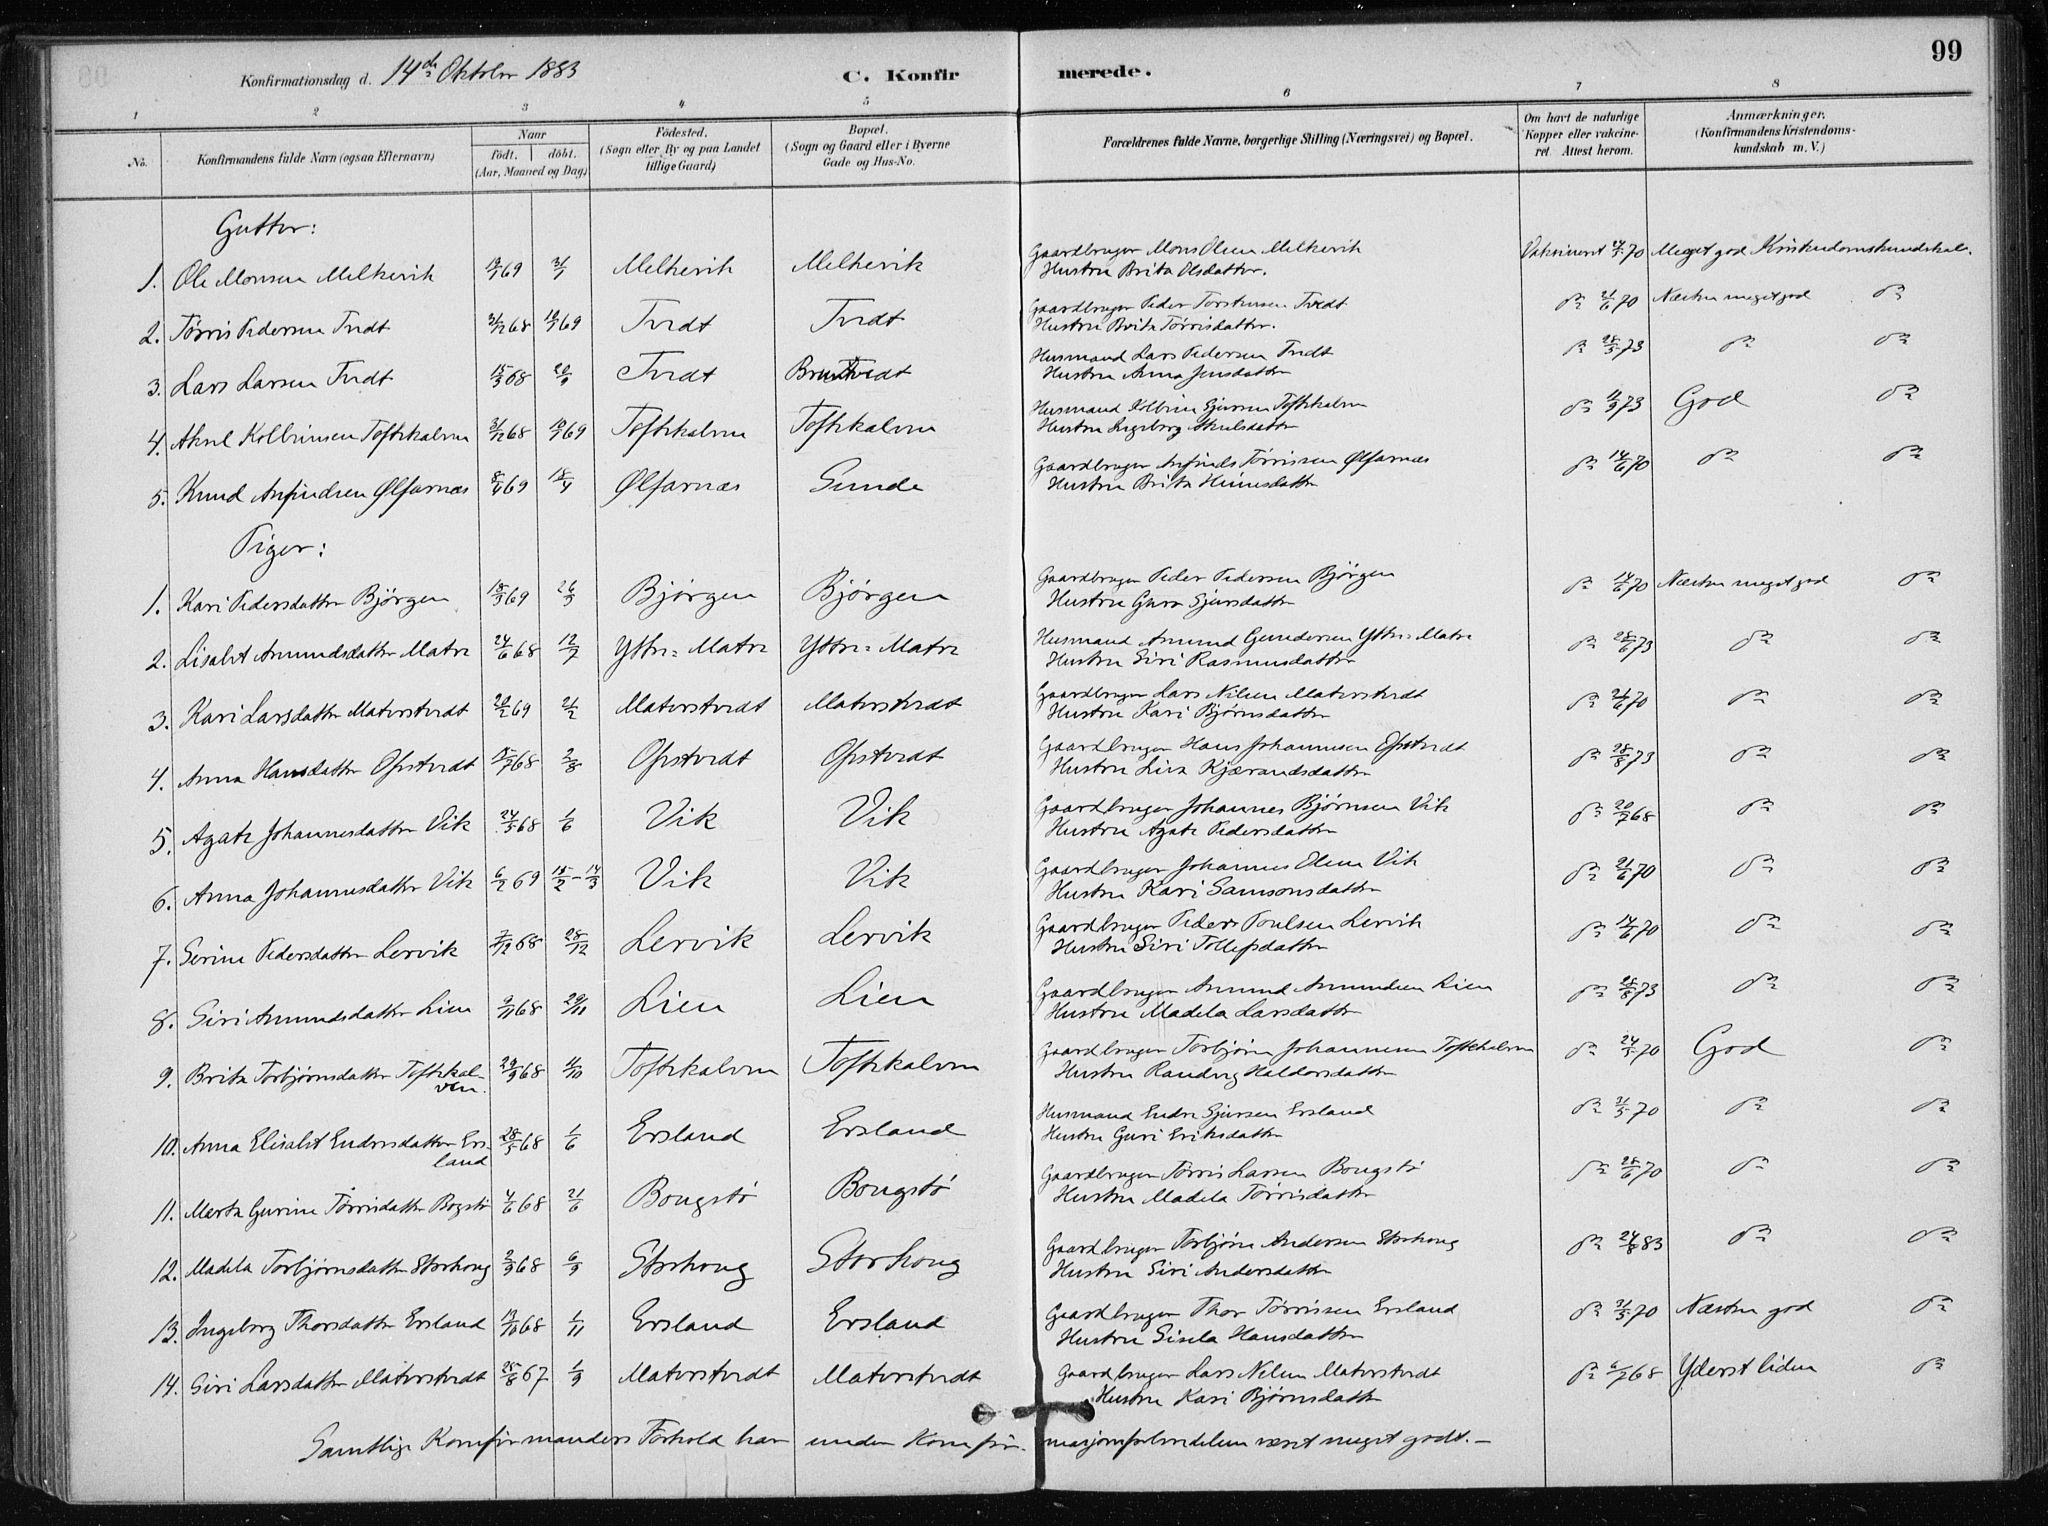 99
Konfirmationsdag d. 14de Oktober 1883
C. Konfirmerede.
1 2 3 4 5 6 7 8
No. Konfirmandens fulde Navn (ogsaa Efternavn) Naar födt. döbt. (Aar, Maaned og Dag) Födested. (Sogn eller By og paa Landet tillige Gaard) Bopæl. (Sogn og Gaard eller i Byerne Gade og Hus-No. Forældrenes fulde Navne, borgerlige Stilling (Næringsvei) og Bopæl. Om havt de naturlige Kopper eller vakcineret. Attest herom. Anmærkninger. (Konfirmandens Kristendomskundskab m.V.)
Gutter:
1. Ole Monsen Melkevik 19/7 69 Melkevik Melkevik Gaardbruger Mons Olsen Melkevik Vaksineret 70 Meget god Kristendomskundskab.
Hustru Brita Olsdatter.
2. Tørris Pedersen Tvedt 31/12 68 10/1 69 Tvedt Tvedt Gaardbruger Peder Torstensen Tvedt do 21/6 70 Næsten meget god do
Hustru Brita Tørrisdatter.
3. Lars Larsen Tvedt 15/9 68 20/9 Tvedt Husmand Lars Pedersen Tvedt do 28/5 73 do do
Hustru Anna Jensdatter
4. Kolbeinsen Toftekalven 31/12 68 10/1 69 Toftekalven Toftekalven Husmand Kolbein Sjursen Toftekalven do 73 God do
Hustru Ingeborg
5. Knud Anfindsen Ølfarnæs 8/4 69 18/4 Ølfarnæs Sunde Gaardbruger Anfinds Tørrissen Ølfarnæs do 14/6 70 do do
Hustru Brita
Piger:
1. Kari Pedersdatter Bjørgen 18/3 69 26/3 Bjørgen Bjørgen Gaardbruger Peder Pedersen Bjørgen do 14/6 70 Næsten meget god do
Hustru Guro Sjursdatter
2. Lisabet Amundsdatter Matre 24/6 68 12/7 Yttre=Matre Yttre=Matre Husmand Amund Gundersen Yttre=Matre do 28/6 73 do do
Hustru Siri Rasmusdatter
3. Kari Larsdatter Matorstvedt 20/2 69 21/2 Matorstvedt Matorstvedt Gaardbruger Lars Nilsen Matorstvedt do 21/6 70 do do
Hustru Kari Bjørnsdatter
4. Anna Hansdatter Opstvedt 15/7 68 2/8 Opstvedt Opstvedt Gaardbruger Hans Johannesen Opstvedt do 28/8 73 do do
Hustru Liva Kjærandsdatter
5. Agate Johannesdatter Vik 24/5 68 1/6 Vik Vik Gaardbruger Johannes Bjørnsen Vik do 20/7 68 do do
Hustru Agate Pedersdatter
6. Anna Johannesdatter Vik 6/2 69 15/2 - 14/3 Vik Vik Gaardbruger Johannes Olsen Vik do 21/6 70 do do
Hustru Kari Samsonsdatter
7. Serine Pedersdatter Lervik 7/12 68 28/12 Lervik Lervik Gaardbruger Peder Poulsen Lervik do 14/6 70 do do
Hustru Siri Tollefsdatter
8. Siri Amundsdatter Lien 9/11 68 29/11 Lien Lien Gaardbruger Amund Amundsen Lien do 28/8 73 do do
Hustru Madela Larsdatter
9. Brita Torbjørnsdatter Toftekal- 29/9 68 11/10 Toftekalven Toftekalven Gaardbruger Torbjørn Johannesen Toftekalven do 24/5 70 God do
ven. Hustru Randveg Haldorsdatter
10. Anna Elisabet Endresdatter Ers- 28/5 68 1/6 Ersland Ersland Husmand Endre Sjursen Ersland do 31/5 70 do do
land Hustru Guri Eriksdatter
11. Marta Gurine Tørrisdatter Bogstø 4/6 68 21/6 Bougstø Bougstø Gaardbruger Tørris Larsen Bougstø do 28/6 70 do do
Hustru Madela Tørrisdatter
12. Madela Torbjørnsdatter Storhoug 2/9 68 6/9 Storhoug Storhoug Gaardbruger Torbjørn Andersen Storhoug do 24/8 83 do do
Hustru Siri Andersdatter
13. Ingeborg Thorsdatter Ersland 19/10 68 1/11 Ersland Ersland Gaardbruger Thor Tørrissen Ersland do 31/5 70 Næsten god do
Hustru Sisela Hansdatter
14. Siri Larsdatter Matorstvedt 25/8 67 1/9 Matorstvedt Matorstvedt Gaardbruger Lars Nilsen Matorstvedt do 6/7 68 Yderst liden do
Hustru Kari Bjørnsdatter
Samtlige Konfirmanders Forhold har under Konfirmasjonsforberedelsen været meget godt.—